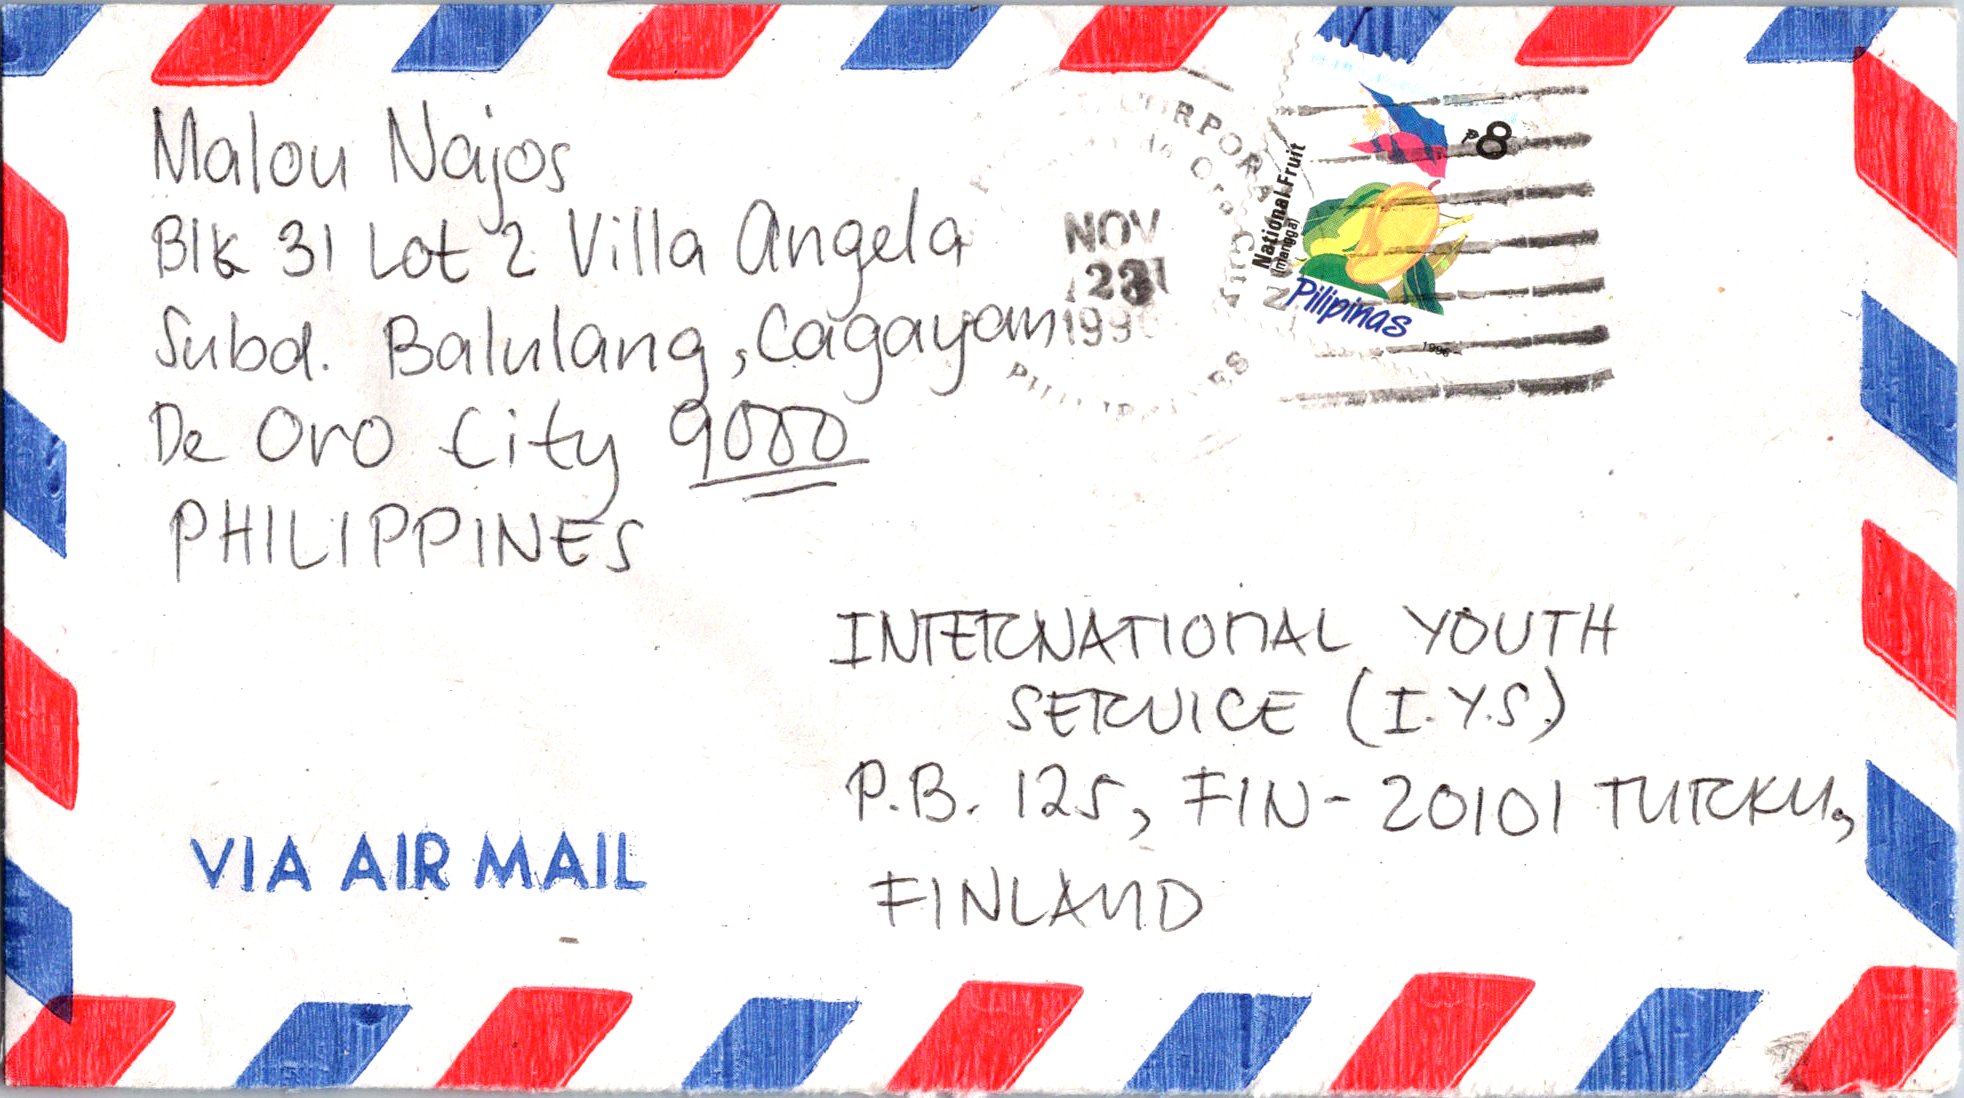 Malou Najos
Blk 31 Lot 2 Villa Angela
Subd. Balulang, Cagayan
De Oro City 9000
PHILIPPINES
CORPOR
Oro City
NOV
1996
PHILIPPINES
National Fruit
(mangga)
P8
Pilipinas
1996
INTERNATIONAL YOUTH
SERVICE (I.Y.S.)
P.B. 125, FIN-20101 TURKU,
FINLAND
VIA AIR MAIL